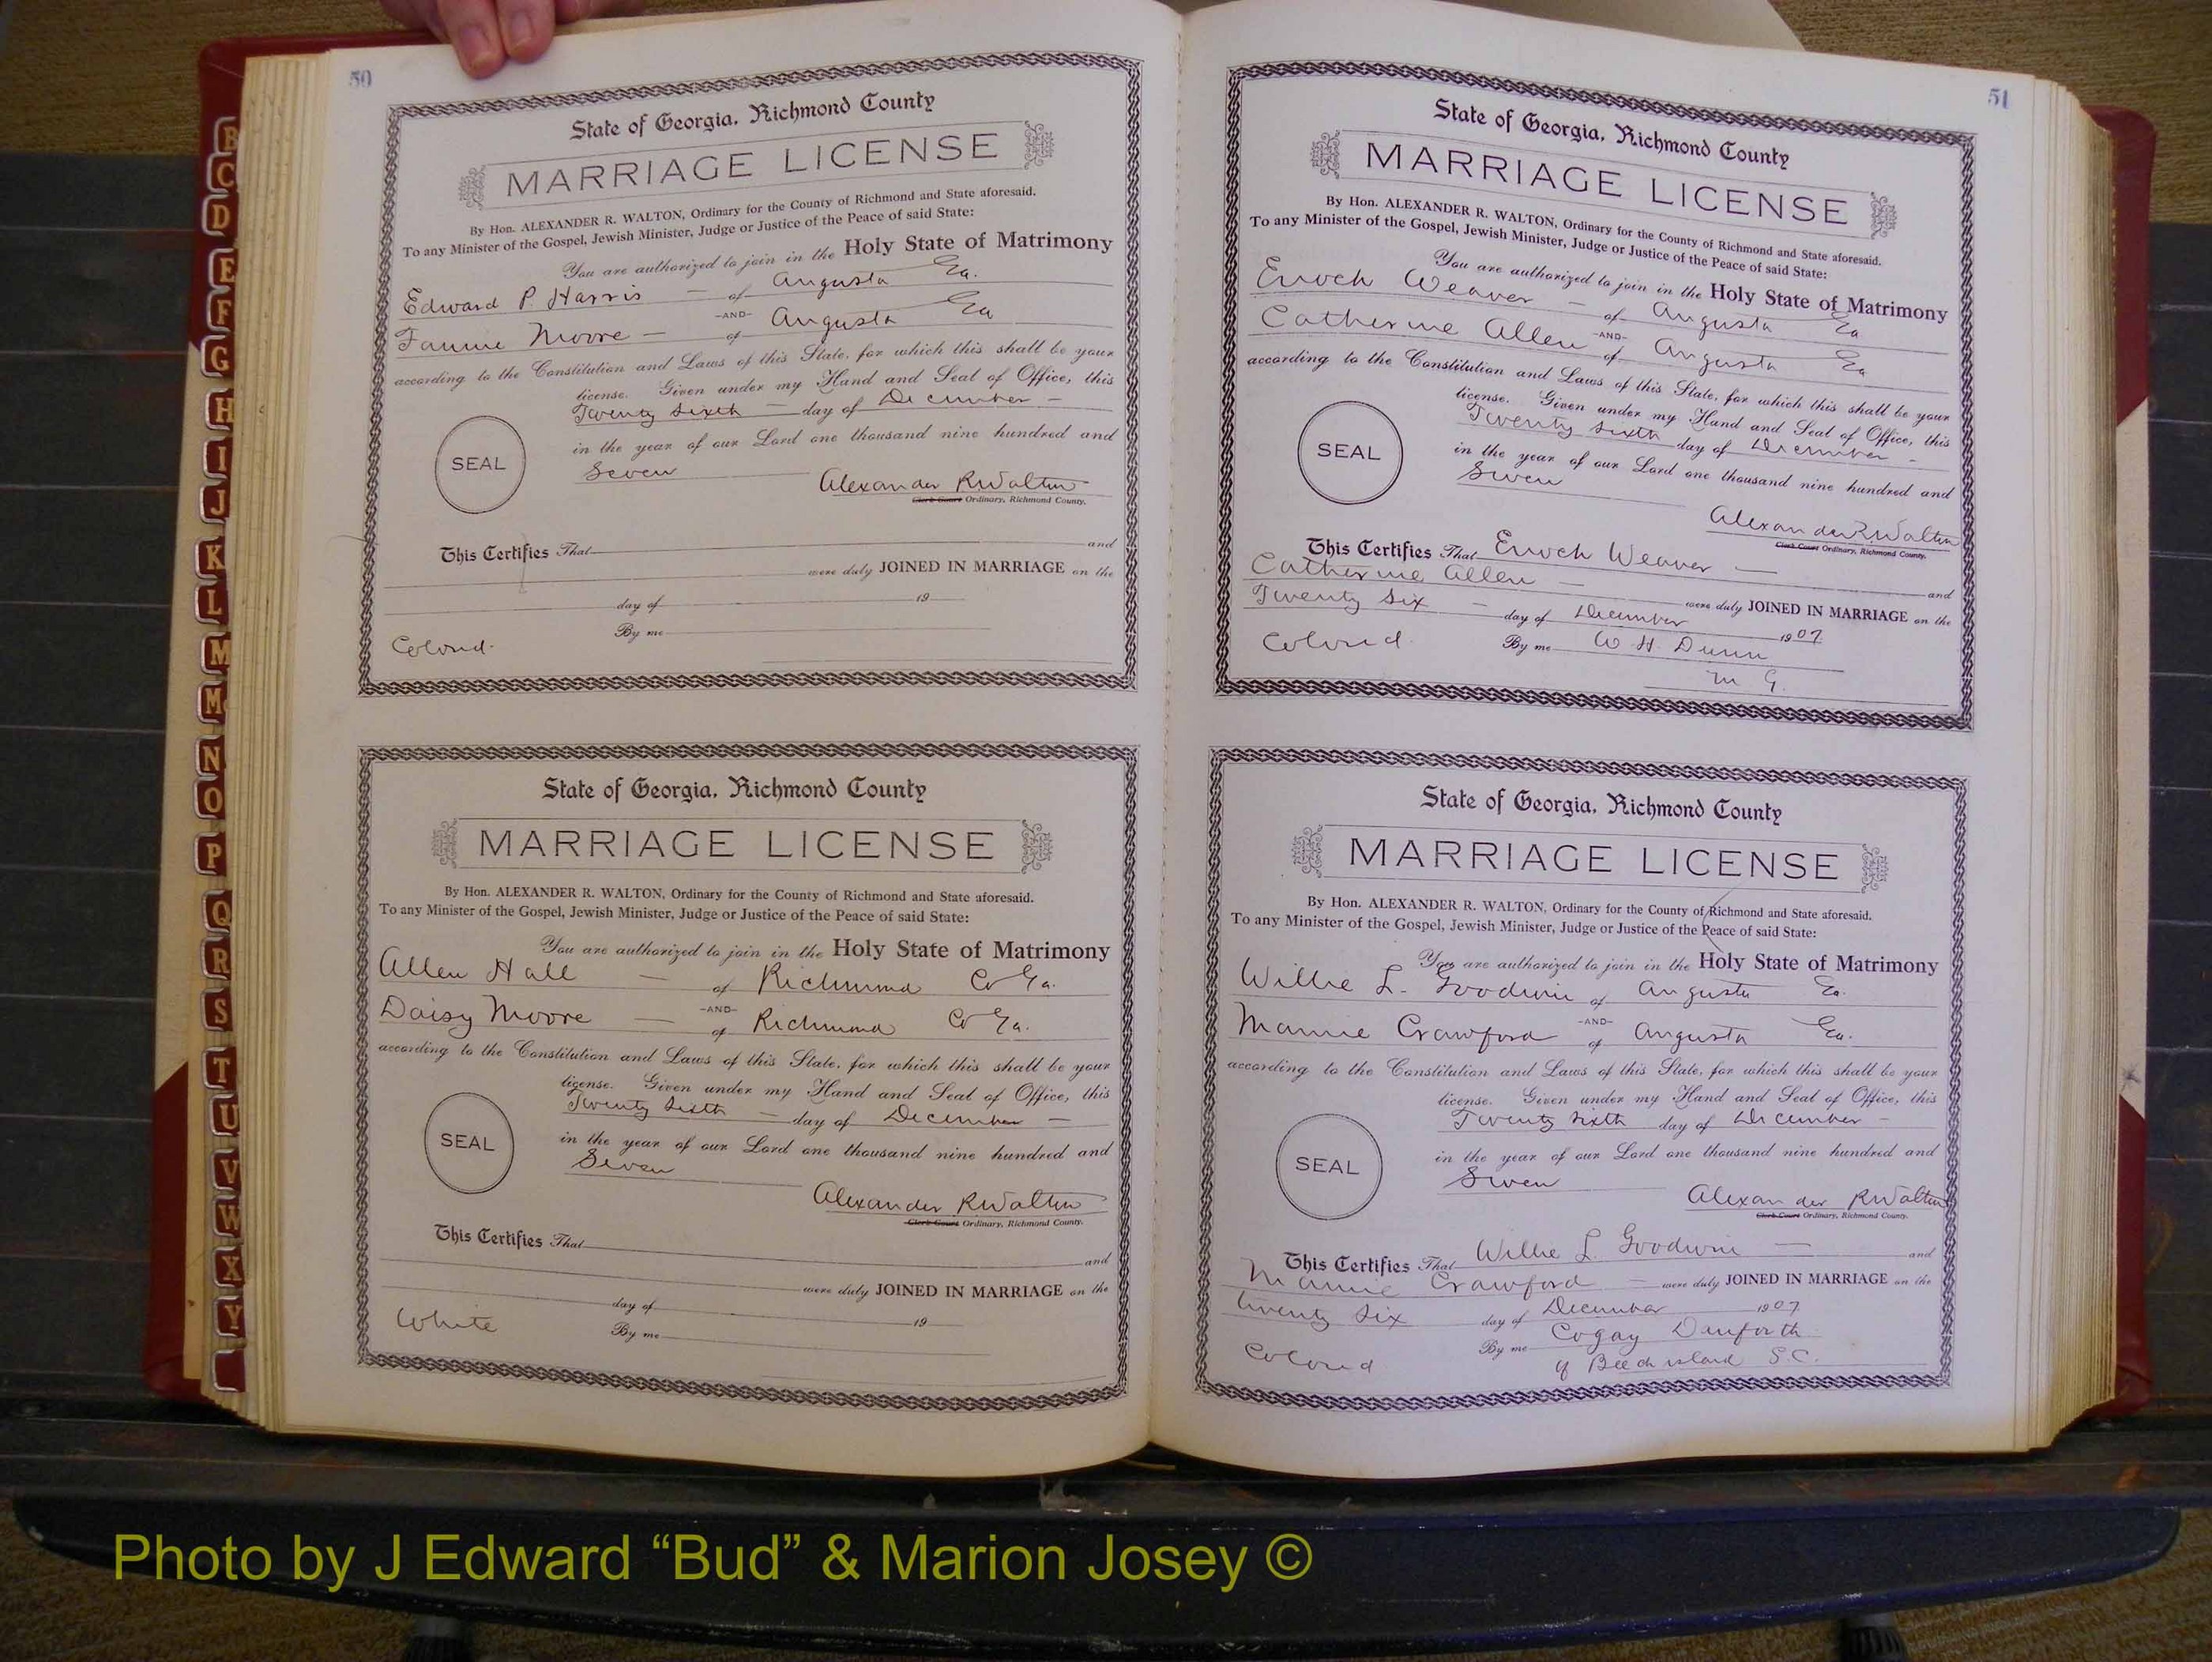 50
State of Georgia, Richmond County
MARRIAGE LICENSE
By Hon. ALEXANDER R. WALTON, Ordinary for the County of Richmond and State aforesaid.
To any Minister of the Gospel, Jewish Minister, Judge or Justice of the Peace of said State:
You are authorized to join in the Holy State of Matrimony
Edward P. Harris — of Augusta Ga.
-AND-
Fannie Moore — of Augusta Ga
according to the Constitution and Laws of this State, for which this shall be your
license. Given under my Hand and Seal of Office, this
Twenty sixth — day of December —
in the year of our Lord one thousand nine hundred and
SEAL
Seven
Alexander R Walton
Clerk Court Ordinary, Richmond County.
This Certifies That and
were duly JOINED IN MARRIAGE on the
day of 19
By me
Colored.
State of Georgia, Richmond County
MARRIAGE LICENSE
By Hon. ALEXANDER R. WALTON, Ordinary for the County of Richmond and State aforesaid.
To any Minister of the Gospel, Jewish Minister, Judge or Justice of the Peace of said State:
You are authorized to join in the Holy State of Matrimony
Allen Hall — of Richmond Co Ga.
-AND-
Daisy Moore — of Richmond Co Ga.
according to the Constitution and Laws of this State, for which this shall be your
license. Given under my Hand and Seal of Office, this
Twenty Sixth — day of December —
in the year of our Lord one thousand nine hundred and
SEAL
Seven
Alexander R Walton
Clerk Court Ordinary, Richmond County.
This Certifies That and
were duly JOINED IN MARRIAGE on the
day of 19
White By me
51
State of Georgia, Richmond County
MARRIAGE LICENSE
By Hon. ALEXANDER R. WALTON, Ordinary for the County of Richmond and State aforesaid.
To any Minister of the Gospel, Jewish Minister, Judge or Justice of the Peace of said State:
You are authorized to join in the Holy State of Matrimony
Enoch Weaver — of Augusta Ga
-AND-
Catherine Allen of Augusta Ga
according to the Constitution and Laws of this State, for which this shall be your
license. Given under my Hand and Seal of Office, this
Twenty sixth day of December —
in the year of our Lord one thousand nine hundred and
SEAL
Seven
Alexander R Walton
Clerk Court Ordinary, Richmond County.
This Certifies That Enoch Weaver — and
Catherine Allen — were duly JOINED IN MARRIAGE on the
Twenty Six — day of December 1907
Colored By me W. H. Dunn
M G.
State of Georgia, Richmond County
MARRIAGE LICENSE
By Hon. ALEXANDER R. WALTON, Ordinary for the County of Richmond and State aforesaid.
To any Minister of the Gospel, Jewish Minister, Judge or Justice of the Peace of said State:
You are authorized to join in the Holy State of Matrimony
Willie L. Goodwin of Augusta Ga.
-AND-
Mamie Crawford of Augusta Ga.
according to the Constitution and Laws of this State, for which this shall be your
license. Given under my Hand and Seal of Office, this
Twenty sixth day of December —
in the year of our Lord one thousand nine hundred and
SEAL
Seven
Alexander R Walton
Clerk Court Ordinary, Richmond County.
This Certifies That Willie L. Goodwin — and
Mamie Crawford — were duly JOINED IN MARRIAGE on the
twenty six day of December 1907
Colored By me Danforth
of Beech island S.C.
B
C
D
E
F
G
H
I
J
K
L
M
M
N
O
P
Q
R
S
T
U
V
W
X
Y
Photo by J Edward “Bud” & Marion Josey ©